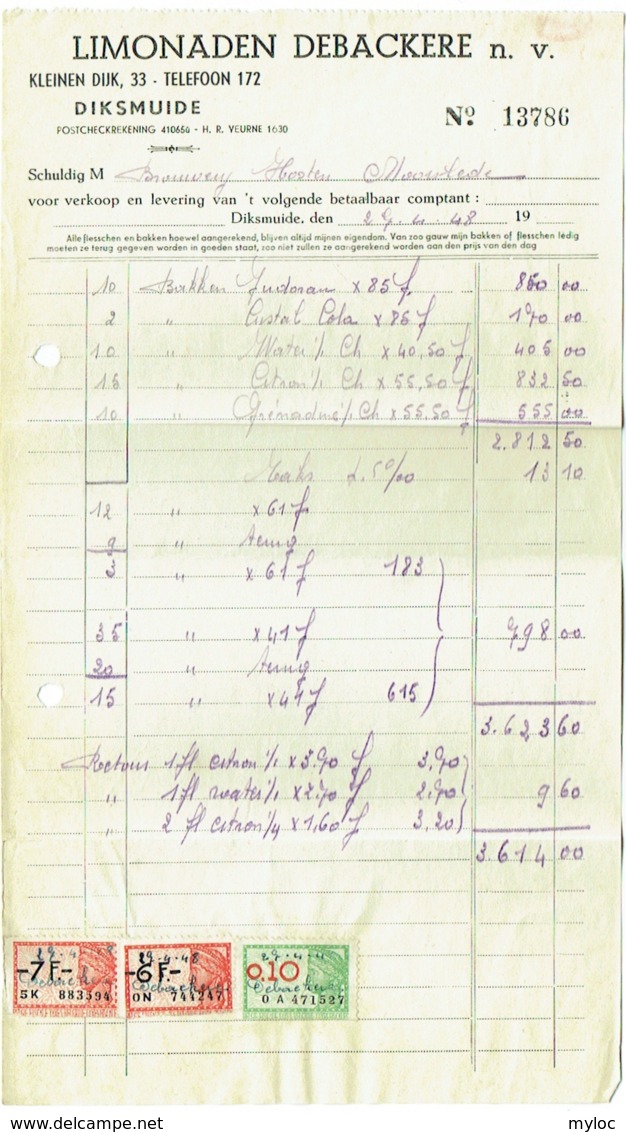 LIMONADEN DEBACKERE n. v.
KLEINEN DIJK, 33 - TELEFOON 172
DIKSMUIDE
Nº 13786
POSTCHECKREKENING 410650 - H. R. VEURNE 1630
Schuldig M Brouwerij Hosten Moorslede
voor verkoop en levering van 't volgende betaalbaar comptant :
Diksmuide, den 29.4.48 19
Alle flesschen en bakken hoewel aangerekend, blijven altijd mijnen eigendom. Van zoo gauw mijn bakken of flesschen ledig
moeten ze terug gegeven worden in goeden staat, zoo niet zullen ze aangerekend worden aan den prijs van den dag
10 Bakken x 85 f 850 00
2 " Cristal Cola x 85 f 170 00
10 " Water 1/1 Ch x 40,50 f 405 00
15 " Citron 1/1 Ch x 55,50 f 832 50
10 " Grenadine 1/1 Ch x 55,50 f 555 00
2.812 50
Maks 5 0/00 13 10
12 " x 61 f
9 " terug
3 " x 61 f 183
35 " x 41 f 798 00
20 " terug
15 " x 41 f 615
3.623 60
Retour 1 fl citron 1/1 x 3,70 f 3,70
" 1 fl water 1/1 x 2,70 f 2,70 9 60
" 2 fl citron 1/4 x 1,60 f 3,20
3.614 00
29-4-48 29-4-48 29-4-4
-7F.- -6F.- 0.10
Debackere Debackere Debackere
5K 883594 0N 744247 0A 471527
myloc